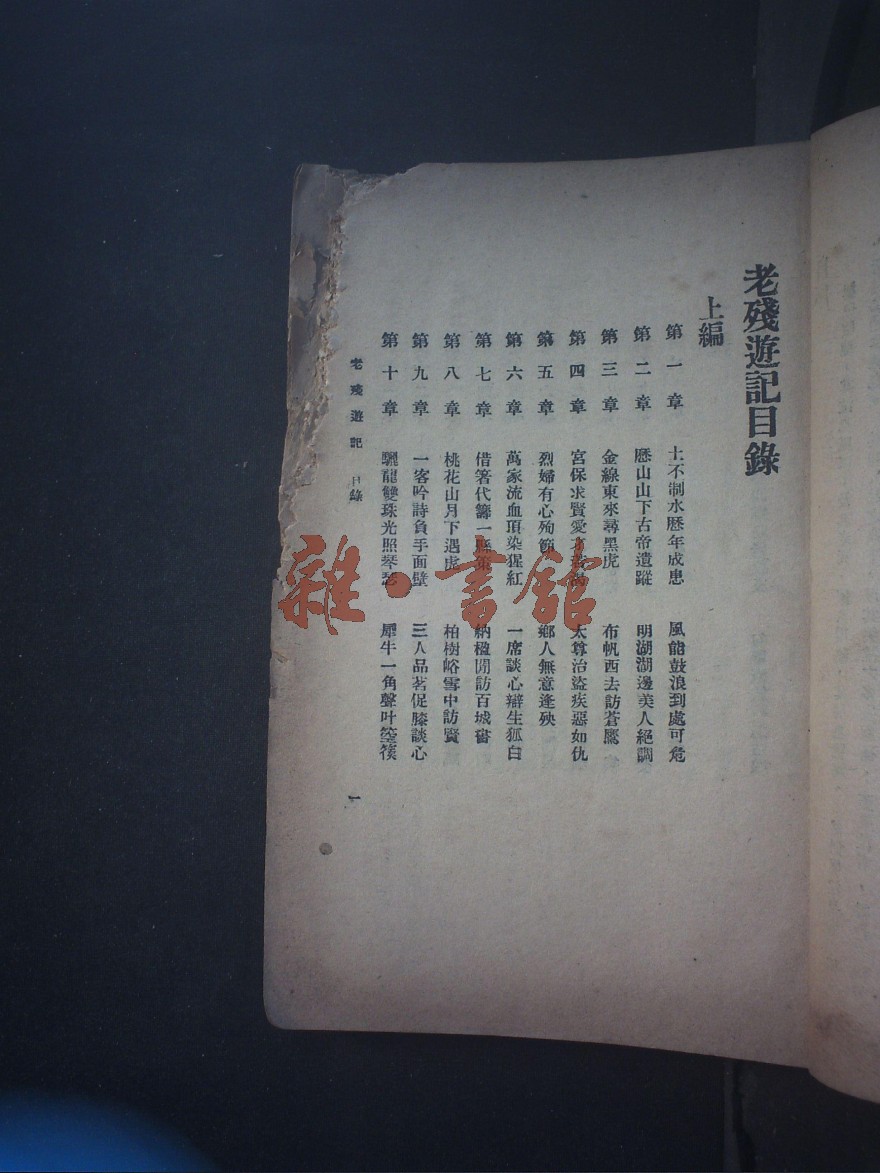 老殘遊記目錄
上編
第一章 土不制水歷年成患 風能鼓浪到處可危
第二章 歷山山下古帝遺蹤 明湖湖邊美人絕調
第三章 金線東來尋黑虎 布帆西去訪蒼鷹
第四章 宮保求賢愛 太尊治盜疾惡如仇
第五章 烈婦有心殉節 鄉人無意逢殃
第六章 萬家流血頂染猩紅 一席談心辯生狐白
第七章 借箸代籌一縣策 納楹閒訪百城書
第八章 桃花山月下遇虎 柏樹峪雪中訪賢
第九章 一客吟詩負手面壁 三人品茗促膝談心
第十章 驪龍雙珠光照琴瑟 犀牛一角聲叶箜篌
老殘遊記 目錄
一
雜·書館